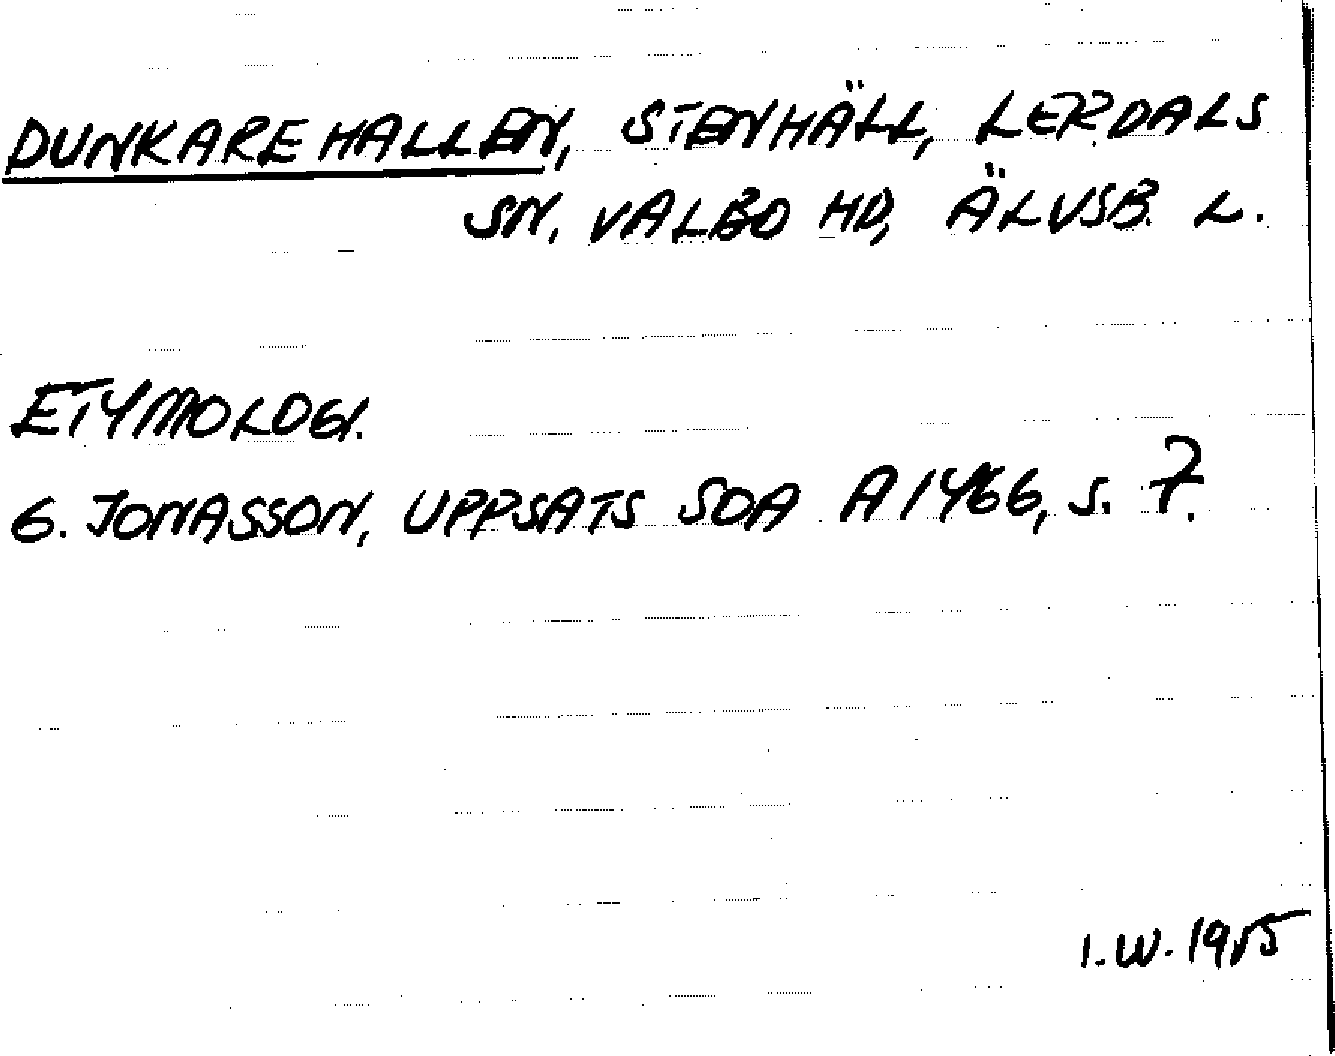 DUNKAREHALLEN, STENHÄLL, LERDALS
SN, VALBO HD, ÄLVSB. L.
ETYMOLOGI.
G. JONASSON, UPPSATS SOA A1466, S. 7.
I.W.